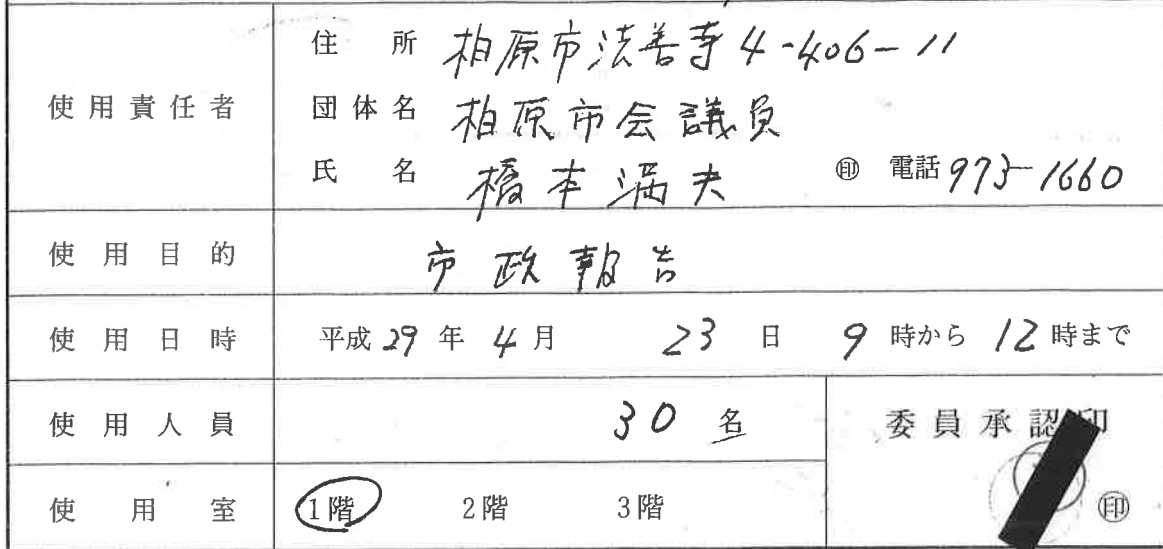 使用責任者
住所 柏原市法善寺4-406-11
団体名 柏原市会議員
氏名 橋本満夫 ㊞ 電話 973-1660
使用目的 市政報告
使用日時 平成29年4月23日 9時から12時まで
使用人員 30名
委員承認印
㊞
使用室 1階 2階 3階